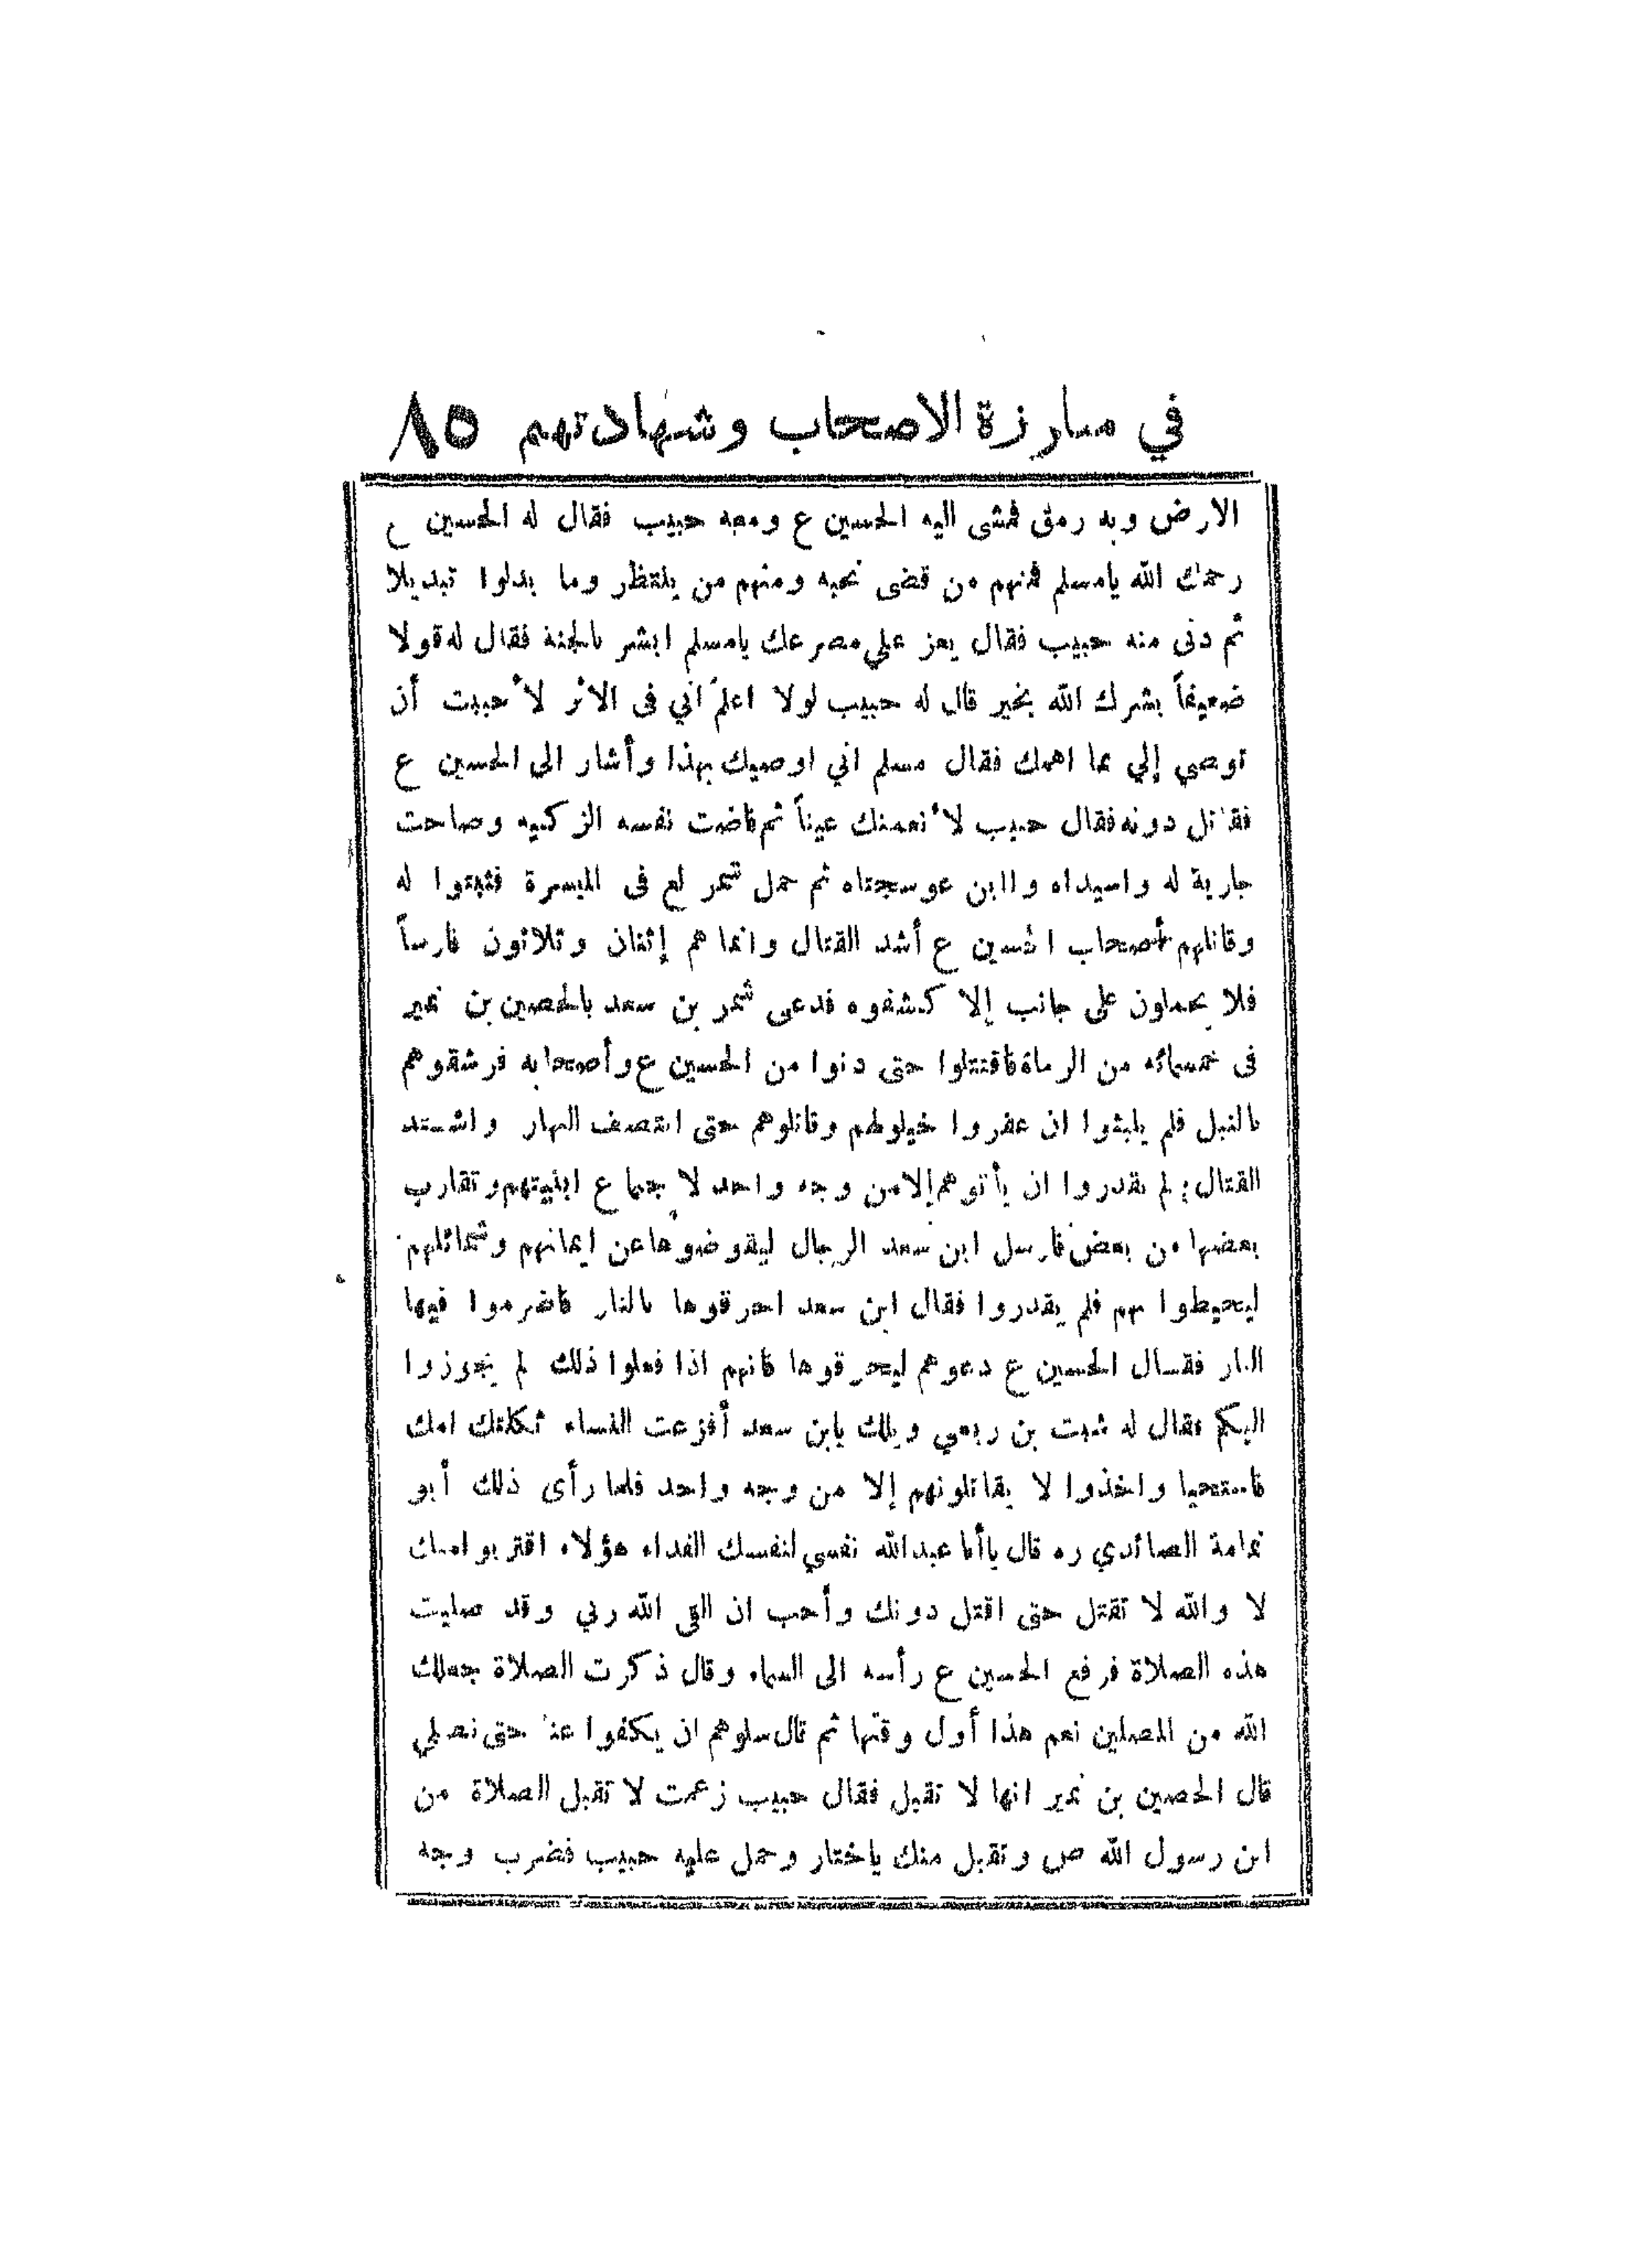 في مبارزة الاصحاب وشهادتهم ٨٥
الارض وبه رمق فمشى اليه الحسين ع ومعه حبيب فقال له الحسين ع
رحمك الله يامسلم فمنهم من قضى نحبه ومنهم من ينتظر وما بدلوا تبديلا
ثم دنى منه حبيب فقال يعز علي مصرعك يامسلم ابشر بالجنة فقال له قولا
ضعيفاً بشرك الله بخير قال له حبيب لولا اعلم اني فى الاثر لأحببت أن
توصي إلي بما اهمك فقال مسلم اني اوصيك بهذا وأشار الى الحسين ع
فقاتل دونه فقال حبيب لأنعمنك عيناً ثم فاضت نفسه الزكيه وصاحت
جارية له واسيداه واابن عوسجتاه ثم حمل شمر لع فى الميسرة فثبتوا له
وقاتلهم أصحاب الحسين ع أشد القتال وانما هم إثنان وثلاثون فارساً
فلا يحملون على جانب إلا كشفوه فدعى شمر بن سعد بالحصين بن نمير
فى خمسمائه من الرماة فاقتتلوا حتى دنوا من الحسين ع وأصحابه فرشقوهم
بالنبل فلم يلبثوا ان عقروا خيولهم وقاتلوهم حتى انتصف النهار واشتد
القتال ولم يقدروا ان يأتوهم إلا من وجه واحد لاجتماع ابنيتهم وتقارب
بعضها من بعض فارسل ابن سعد الرجال ليقوضوها عن ايمانهم وشمائلهم
ليحيطوا بهم فلم يقدروا فقال ابن سعد احرقوها بالنار فاضرموا فيها
النار فقال الحسين ع دعوهم ليحرقوها فانهم اذا فعلوا ذلك لم يجوزوا
اليكم فقال له شبث بن ربعي ويلك يابن سعد أفزعت النساء ثكلتك امك
فاستحيا واخذوا لا يقاتلونهم إلا من وجه واحد فلما رأى ذلك أبو
ثمامة الصائدي ره قال ياأبا عبدالله نفسي لنفسك الفداء هؤلاء اقتربوا منك
لا والله لا تقتل حتى اقتل دونك وأحب ان القى الله ربي وقد صليت
هذه الصلاة فرفع الحسين ع رأسه الى السماء وقال ذكرت الصلاة جعلك
الله من المصلين نعم هذا أول وقتها ثم قال سلوهم ان يكفوا عنا حتى نصلي
قال الحصين بن نمير انها لا تقبل فقال حبيب زعمت لا تقبل الصلاة من
ابن رسول الله ص وتقبل منك ياختار وحمل عليه حبيب فضرب وجه